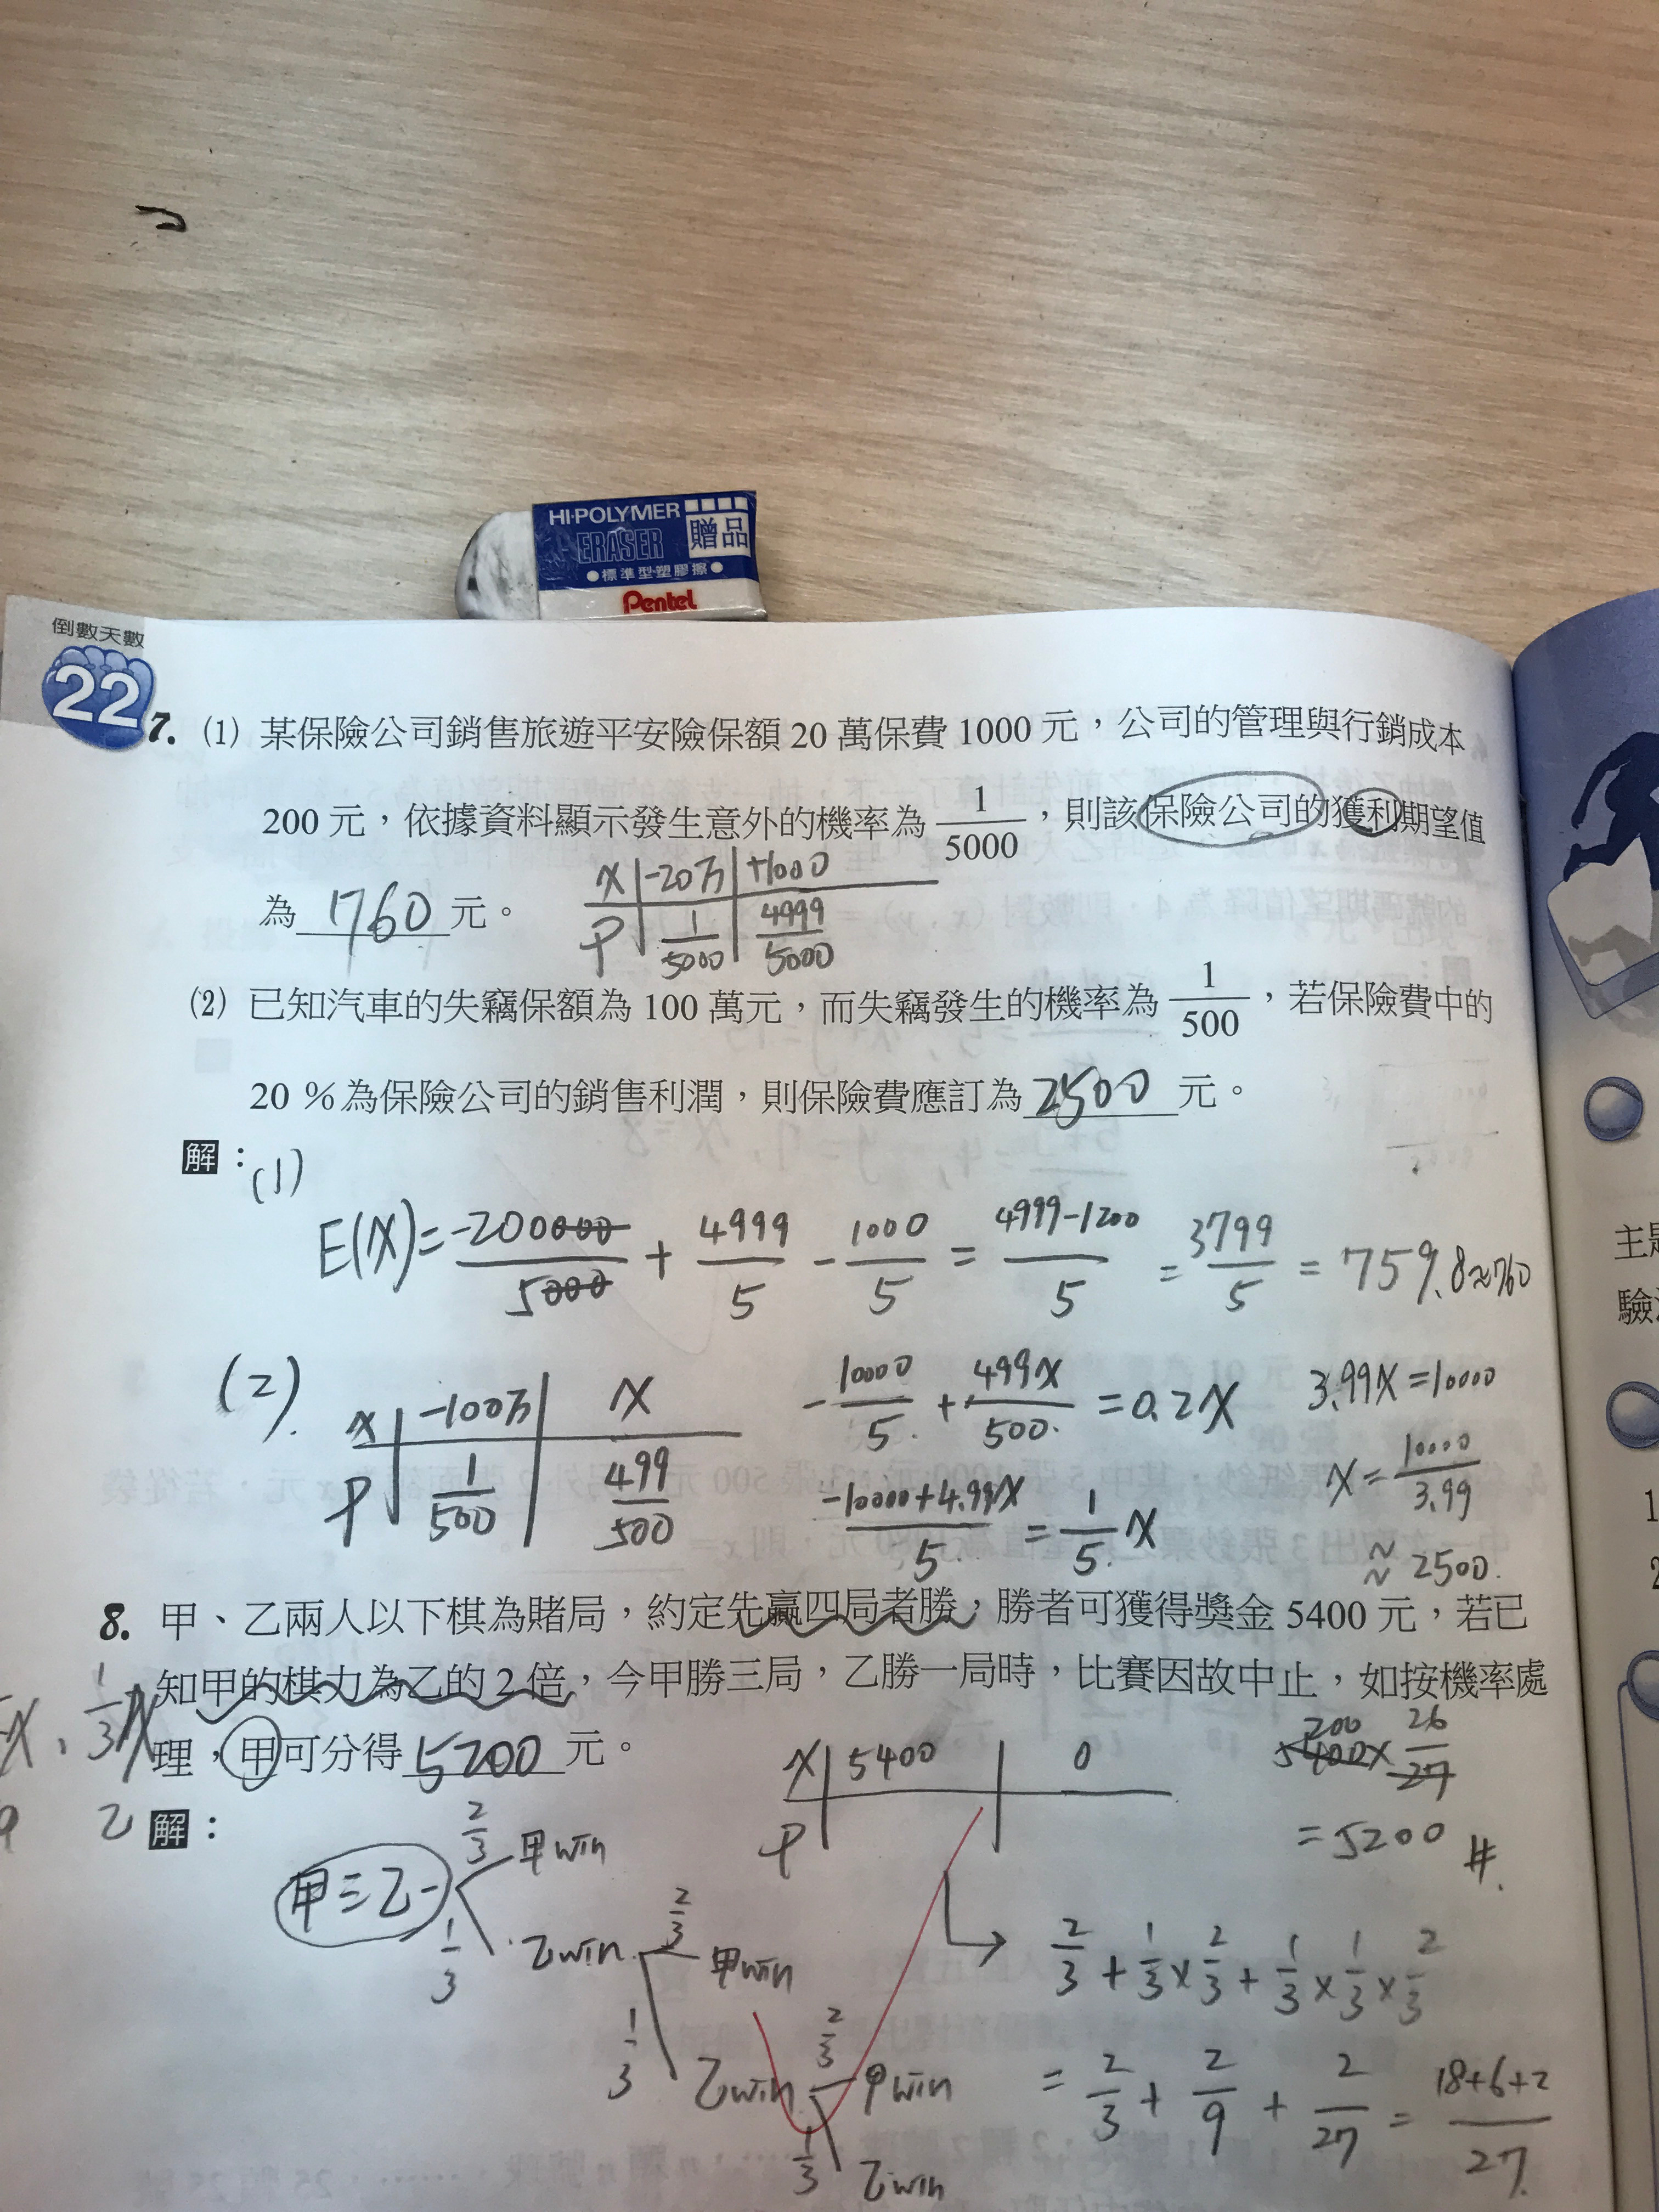 HI-POLYMER
ERASER 贈品
●標準型塑膠擦●
Pentel
倒數天數
22
7. (1) 某保險公司銷售旅遊平安險保額 20 萬保費 1000 元，公司的管理與行銷成本
200 元，依據資料顯示發生意外的機率為 1/5000，則該保險公司的獲利期望值
為 1760 元。
x | -20万 | +1000
P | 1/5000 | 4999/5000
(2) 已知汽車的失竊保額為 100 萬元，而失竊發生的機率為 1/500，若保險費中的
20 %為保險公司的銷售利潤，則保險費應訂為 2500 元。
解：
(1)
E(X)= -200000/5000 + 4999/5 - 1000/5 = 4999-1200/5 = 3799/5 = 759.8≈760
(2).
x | -100万 | x
P | 1/500 | 499/500
-10000/5 + 499x/500 = 0.2x
-10000+4.99x/5 = 1/5 x
3.99x=10000
x= 10000/3.99
≈ 2500.
8. 甲、乙兩人以下棋為賭局，約定先贏四局者勝，勝者可獲得獎金 5400 元，若已
知甲的棋力為乙的 2 倍，今甲勝三局，乙勝一局時，比賽因故中止，如按機率處
理，甲可分得 5200 元。
1/3 x
乙
x | 5400 | 0
P
200
5400× 26/27
= 5200 #.
解：
甲三乙一
2/3 甲win
1/3 乙win
2/3 甲win
1/3 乙win
2/3 甲win
1/3 乙win
2/3 + 1/3 × 2/3 + 1/3 × 1/3 × 2/3
= 2/3 + 2/9 + 2/27 = 18+6+2/27
主題
驗
1
2